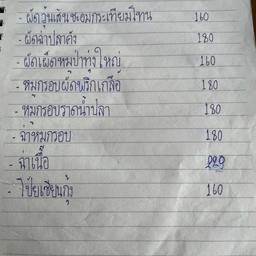 - ผัดวุ้นเส้นชะอมกระเทียมโทน 160
- ผัดฉ่าปลาคัง 180
- ผัดเผ็ดหมูป่าทุ่งใหญ่ 160
- หมูกรอบผัดพริกเกลือ 180
- หมูกรอบราดน้ำปลา 180
- ฉ่าหมูกรอบ 180
- ฉ่าเนื้อ 220
- โป๊ยเซียนกุ้ง 160